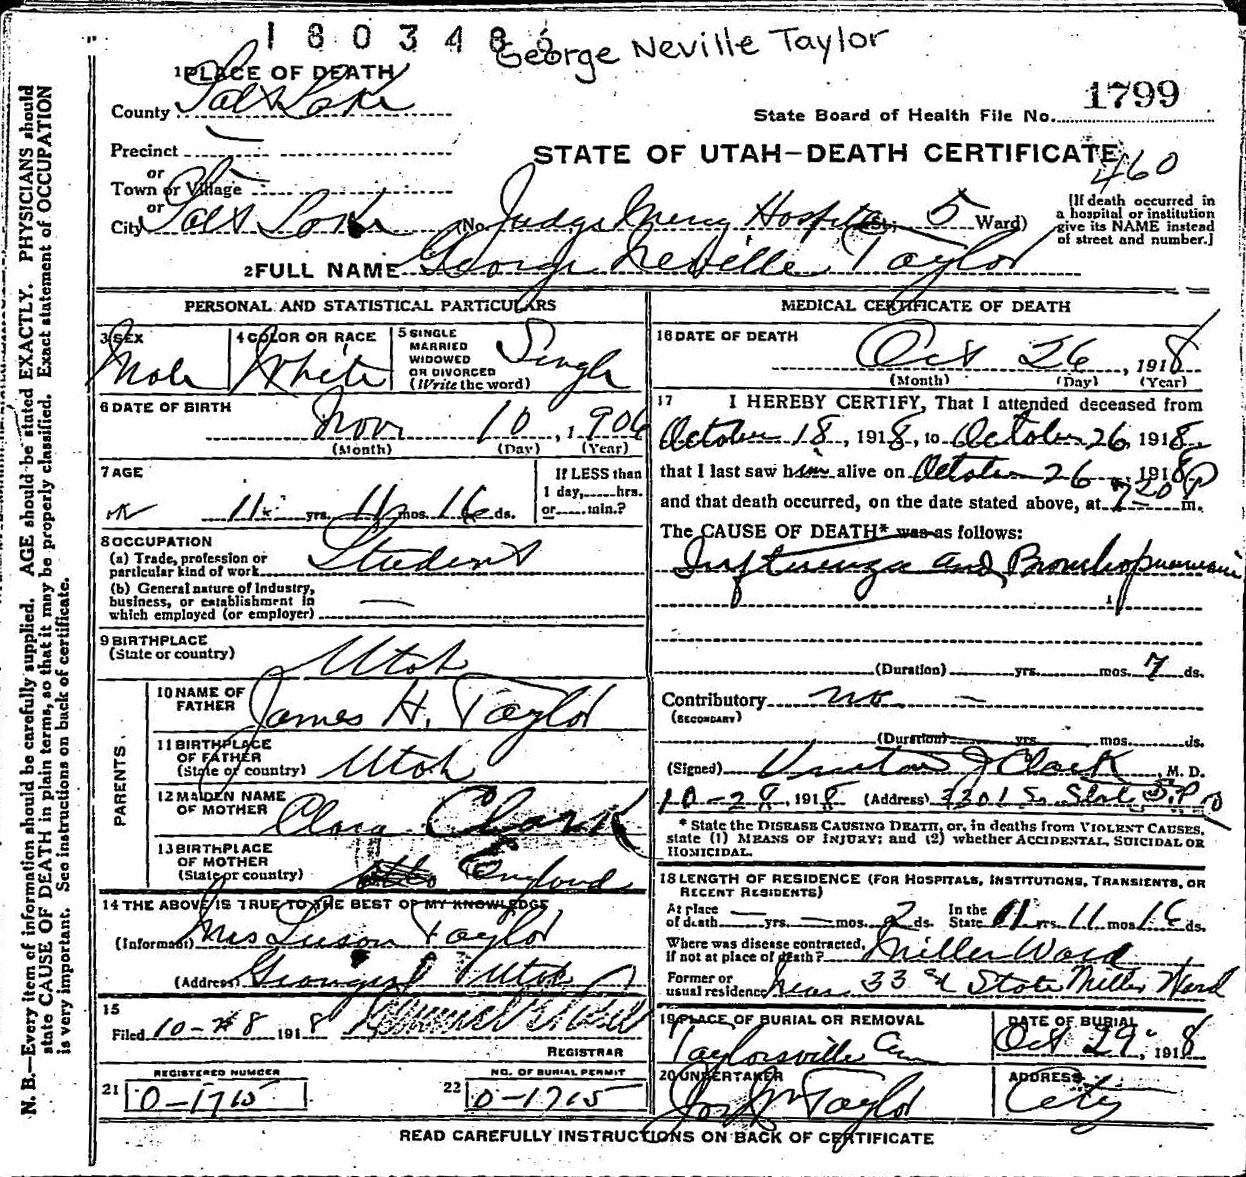 1803488
George Neville Taylor
1 PLACE OF DEATH
County Salt Lake
State Board of Health File No. 1799
Precinct
or
Town or Village
or
STATE OF UTAH—DEATH CERTIFICATE
460
City Salt Lake (No. Judge Mercy Hospital St.; 5 Ward)
[If death occurred in
a hospital or institution
give its NAME instead
of street and number.]
2 FULL NAME George Neville Taylor
PERSONAL AND STATISTICAL PARTICULARS
3 SEX
Male
4 COLOR OR RACE
White
5 SINGLE
MARRIED
WIDOWED
OR DIVORCED
(Write the word)
Single
6 DATE OF BIRTH
Nov 10, 1906
(Month) (Day) (Year)
7 AGE
11 yrs. 11 mos. 16 ds.
If LESS than
1 day,......hrs.
or......min.?
8 OCCUPATION
(a) Trade, profession or
particular kind of work Student
(b) General nature of Industry,
business, or establishment in
which employed (or employer) —
9 BIRTHPLACE
(State or country) Utah
PARENTS
10 NAME OF
FATHER James H. Taylor
11 BIRTHPLACE
OF FATHER
(State or country) Utah
12 MAIDEN NAME
OF MOTHER Clara Clark
13 BIRTHPLACE
OF MOTHER
(State or country) England
14 THE ABOVE IS TRUE TO THE BEST OF MY KNOWLEDGE
(Informant) Mrs Taylor
(Address) Utah
15
Filed 10-28, 1918
REGISTRAR
21 REGISTERED NUMBER
0-1715
22 NO. OF BURIAL PERMIT
0-1715
MEDICAL CERTIFICATE OF DEATH
16 DATE OF DEATH
Oct 26, 1918
(Month) (Day) (Year)
17 I HEREBY CERTIFY, That I attended deceased from
October 18, 1918, to October 26, 1918
that I last saw him alive on October 26, 1918
and that death occurred, on the date stated above, at 720 P m.
The CAUSE OF DEATH* was as follows:
Influenza and Bronchopneumonia
(Duration) yrs. mos. 7 ds.
Contributory no —
(SECONDARY)
(Duration) yrs. mos. ds.
(Signed) Clark, M. D.
10-28, 1918 (Address) 3301 So. State
* State the DISEASE CAUSING DEATH, or, in deaths from VIOLENT CAUSES,
state (1) MEANS OF INJURY; and (2) whether ACCIDENTAL, SUICIDAL OR
HOMICIDAL.
18 LENGTH OF RESIDENCE (FOR HOSPITALS, INSTITUTIONS, TRANSIENTS, OR
RECENT RESIDENTS)
At place
of death — yrs. — mos. 2 ds. In the
State 11 yrs. 11 mos. 16 ds.
Where was disease contracted,
if not at place of death? Miller Ward
Former or
usual residence near 33rd State Miller Ward
19 PLACE OF BURIAL OR REMOVAL
Taylorsville Cem
DATE OF BURIAL
Oct 29, 1918
20 UNDERTAKER
Jos Wm Taylor
ADDRESS
City
READ CAREFULLY INSTRUCTIONS ON BACK OF CERTIFICATE
N. B.—Every item of information should be carefully supplied. AGE should be stated EXACTLY. PHYSICIANS should
state CAUSE OF DEATH in plain terms, so that it may be properly classified. Exact statement of OCCUPATION
is very important. See instructions on back of certificate.